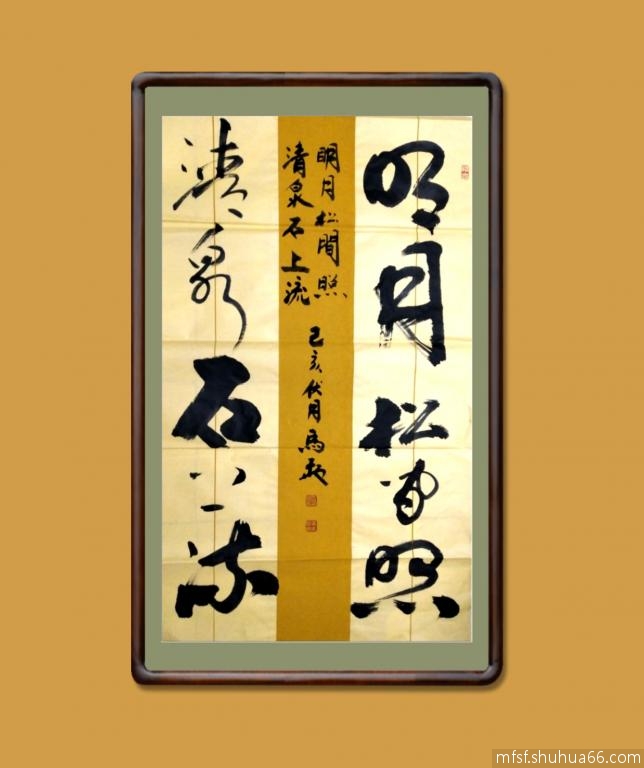 明月松间照
清泉石上流
明月松間照
清泉石上流
己亥伏月馬
mfsf.shuhua66.com